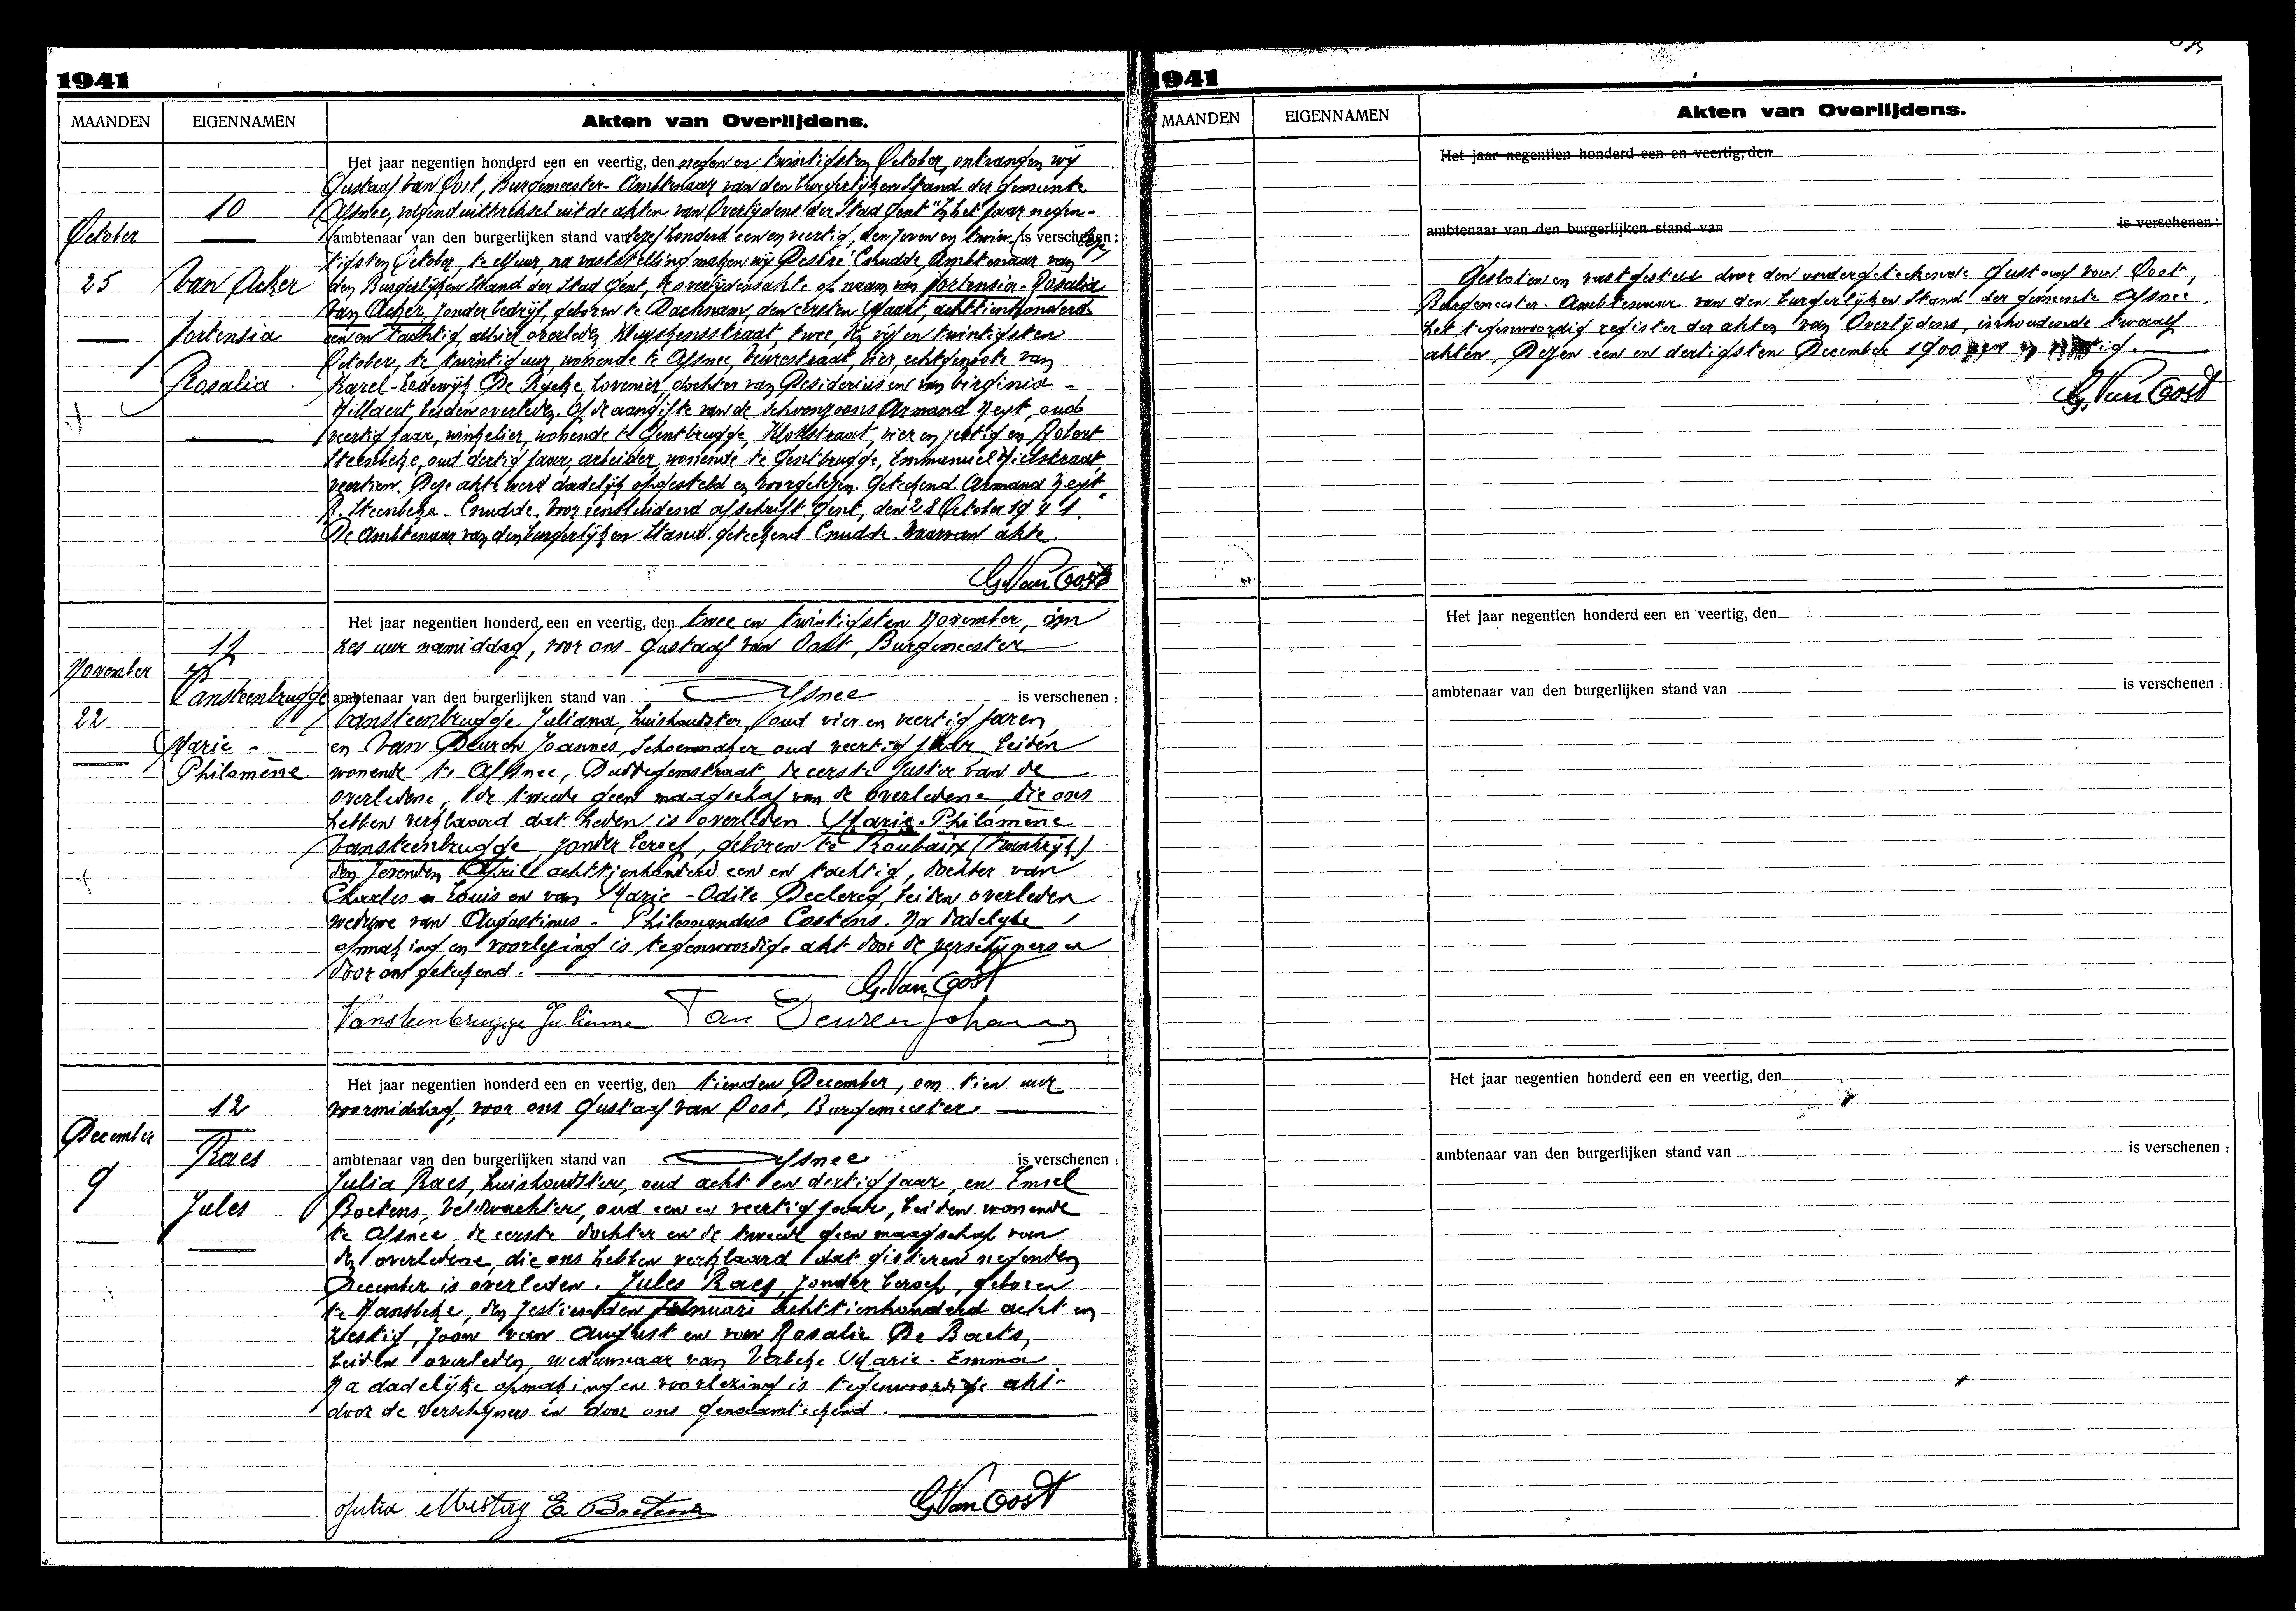 1941
MAANDEN EIGENNAMEN Akten van Overlijdens.
October
25
10
Van Acker
Hortensia
Rosalia
Het jaar negentien honderd een en veertig, den negen en twintigsten October, ontvangen wij
Gustaaf Van Oost, Burgemeester-Ambtenaar van den burgerlijken Stand der gemeente
Afsnee, volgend uittreksel uit de akten van Overlijdens der Stad Gent "In het jaar negen-
ambtenaar van den burgerlijken stand van honderd een en veertig, den zeven en twin is verschenen :
tigsten October, te elf uur, na vaststelling maken wij Desiré Cnudde, Ambtenaar van
den Burgerlijken Stand der Stad Gent, de overlijdensakte op naam van Hortensia-Rosalia
Van Acker, zonder bedrijf, geboren te Dacknam, den eersten Maart, achttienhonderd
een en tachtig, alhier overleden Kluyskensstraat, twee, den vijf en twintigsten
October, te twintig uur, wonende te Afsnee, Veurestraat, vier, echtgenoote van
Karel-Lodewijk De Rycke, hovenier, dochter van Desiderius en van Virginia
beiden overleden. Op de aangifte van de schoonzoons Armand Neyt, oud
veertig jaar, winkelier, wonende te Gentbrugge, Klokstraat, vier en zestig en Robert
Steenbeke, oud dertig jaar, arbeider, wonende te Gentbrugge, Emmanuel Hielstraat,
veertien. Deze akte werd dadelijk opgesteld en voorgelezen. Geteekend. Armand Neyt
R. Steenbeke. Cnudde. Voor eensluidend afschrift Gent, den 28 October 1941.
De Ambtenaar van den burgerlijken Stand. geteekend Cnudde. Waarvan akte.
G. Van Oost
November
22
11
Vansteenbrugge
Marie-
Philomène
Het jaar negentien honderd een en veertig, den twee en twintigsten November, om
zes uur namiddag, voor ons Gustaaf Van Oost, Burgemeester
ambtenaar van den burgerlijken stand van Afsnee is verschenen :
Vansteenbrugge Juliana, huishoudster, oud vier en veertig jaren,
en Van Deuren Joannes, Schoenmaker oud veertig jaar beiden
wonende te Afsnee, Duddegemstraat, de eerste zuster van de
overledene, de tweede geen maagschap van de overledene, die ons
hebben verklaard dat heden is overleden. Marie-Philomène
Vansteenbrugge, zonder beroep, geboren te Roubaix (Frankrijk)
den zevenden April achttienhonderd een en tachtig, dochter van
Charles Louis en van Marie-Odile Declercq, beiden overleden
weduwe van Augustinus-Philemondus Costens. Na dadelyke
opmaking en voorlezing is tegenwoordige akt door de verschijners en
door ons geteekend.
G. Van Oost
Vansteenbrugge Julienne Van Deuren Johannes
December
9
12
Raes
Jules
Het jaar negentien honderd een en veertig, den tienden December, om tien uur
voormiddag, voor ons Gustaaf Van Oost, Burgemeester
ambtenaar van den burgerlijken stand van Afsnee is verschenen :
Julia Raes, huishoudster, oud acht en dertig jaar, en Emiel
Boetens, Veldwachter, oud een en veertig jaar, beiden wonende
te Afsnee, de eerste dochter en de tweede geen maagschap van
den overledene, die ons hebben verklaard dat gisteren negenden
December is overleden. Jules Raes, zonder beroep, geboren
te Hansbeke, den zestienden Januari achttienhonderd acht en
zestig, zoon van August en van Rosalie De Baets,
beiden overleden, weduwnaar van Verbeke Marie-Emma
Na dadelijke opmaking en voorlezing is tegenwoordige akt
door de verschijners en door ons geteekend.
Julia E. Boetens G. Van Oost
1941
MAANDEN EIGENNAMEN Akten van Overlijdens.
Het jaar negentien honderd een en veertig, den
ambtenaar van den burgerlijken stand van is verschenen :
Gesloten en vastgesteld door den ondergeteekende Gustaaf Van Oost,
Burgemeester-Ambtenaar van den burgerlijken Stand der gemeente Afsnee,
het tegenwoordig register der akten van Overlijdens, inhoudende twaalf
akten. Dezen een en dertigsten December 1900 een en veertig.
G. Van Oost
Het jaar negentien honderd een en veertig, den
ambtenaar van den burgerlijken stand van is verschenen :
Het jaar negentien honderd een en veertig, den
ambtenaar van den burgerlijken stand van is verschenen :